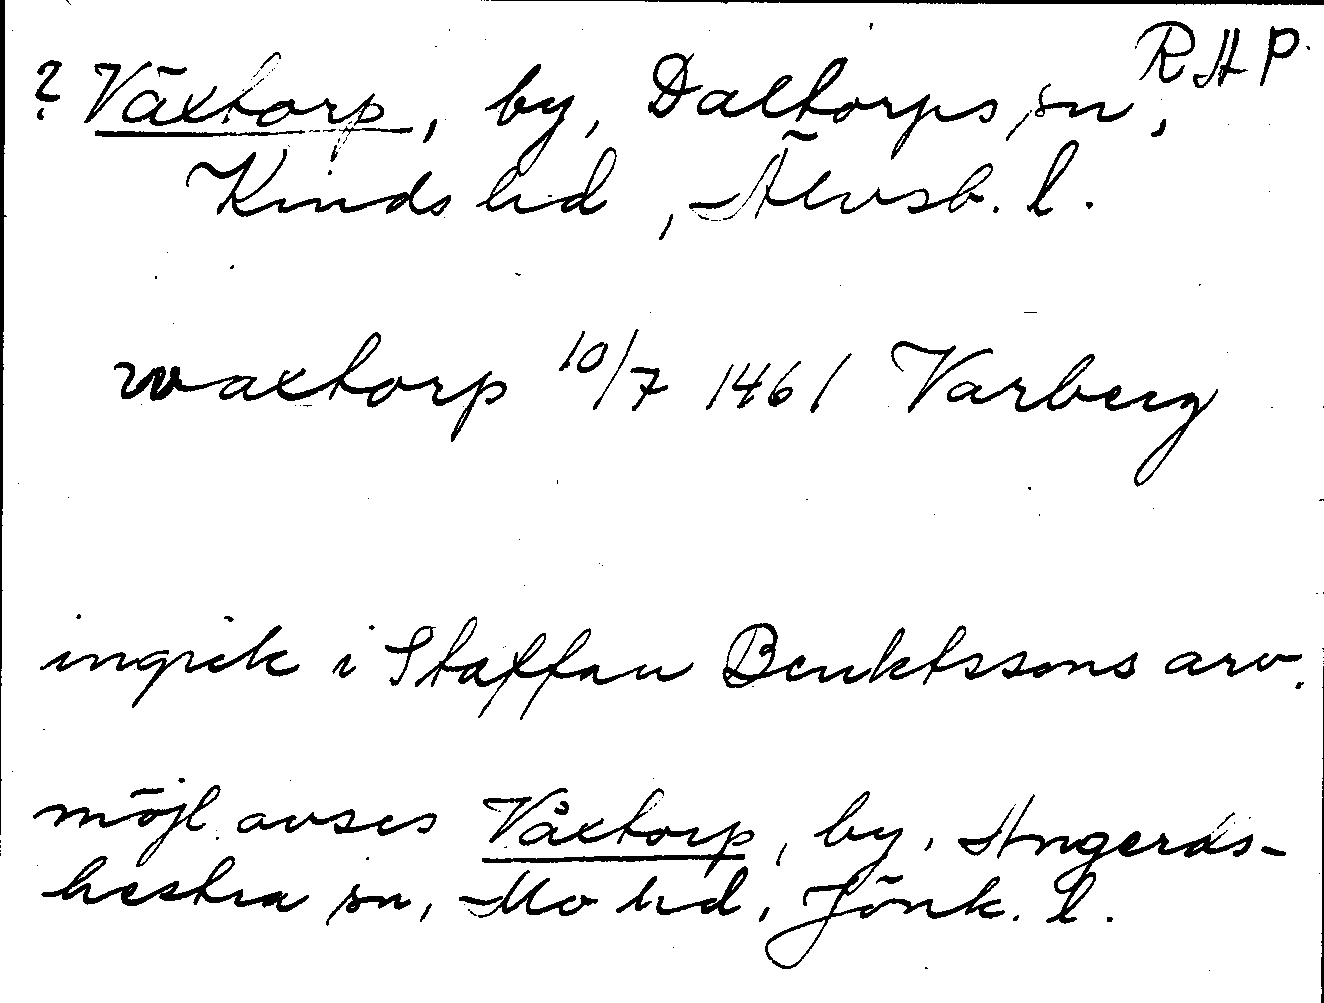 RAP
? Växtorp, by, Daltorps sn,
Kinds hd, Älvsb. l.
waxtorp 10/7 1461 Varberg
ingick i Staffan Benktssons arv.
möjl. avses Våxtorp, by, Angerds-
hestra sn, Mo hd, Jönk. l.